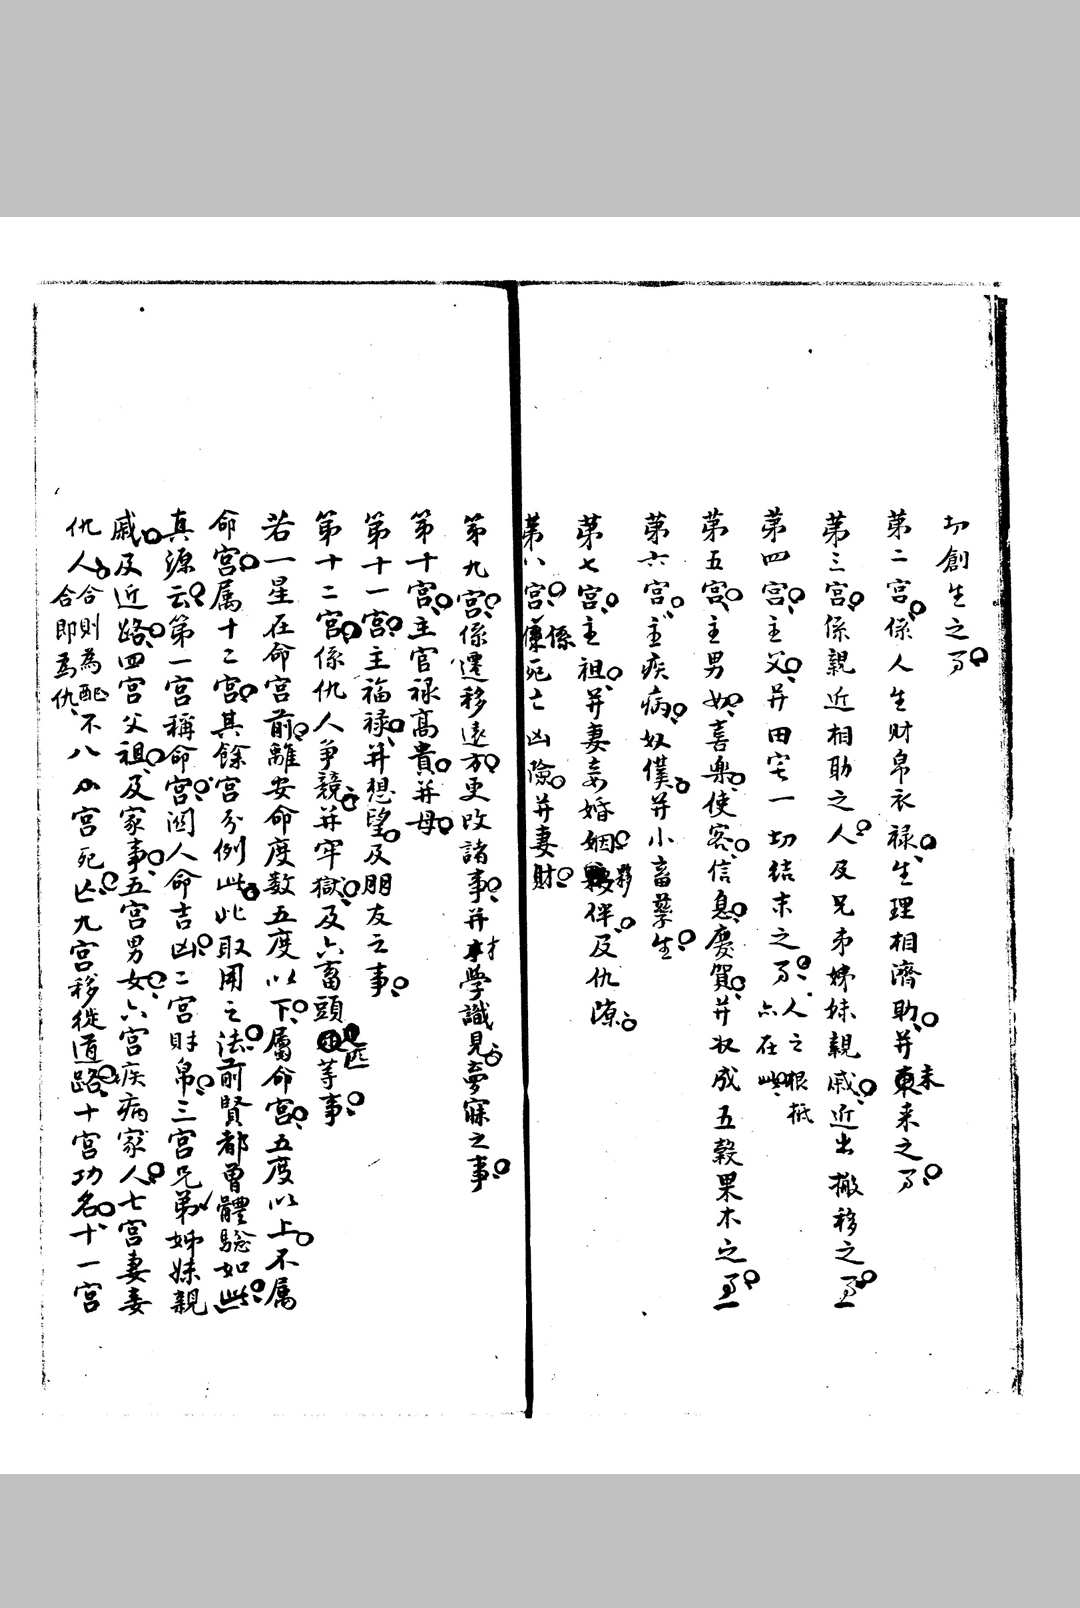 切創生之事
第二宮係人生财帛衣禄生理相濟助并未来之事
第三宮係親近相助之人及兄弟姊妹親戚近出撤移之事
第四宮主父并田宅一切結末之事人之根抵亦在此
第五宮主男女喜樂使客信息慶賀并收成五穀果木之事
第六宮主疾病奴僕并小畜孳生
第七宮主祖并妻妾婚姻夥伴及仇
第八宮係死亡凶險并妻財
第九宮係遷移遠方更改諸事并才學識見夢寐之事
第十宮主官禄髙貴并母
第十一宮主福禄并想望及朋友之事
第十二宮係仇人争競并牢獄及六畜頭匹等事
若一星在命宮前離安命度数五度以下属命宮五度以上不属
命宮属十二宮其餘宮分例此此取用之法前賢都曽體驗如此
真源云第一宮稱命宮関人命吉凶二宮財帛三宮兄弟姊妹親
戚及近路四宮父祖及家事五宮男女六宮疾病家人七宮妻妾
仇人合則為配不合即為仇八宮死亡九宮移徙道路十宮功名十一宮